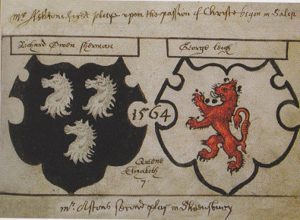 mr Ashtons fyrst playe upon the passion of Christe in Salop
Richard Owen George
1564
Quene
Elizabeth
7
mr Astons second play in Shrewsbury